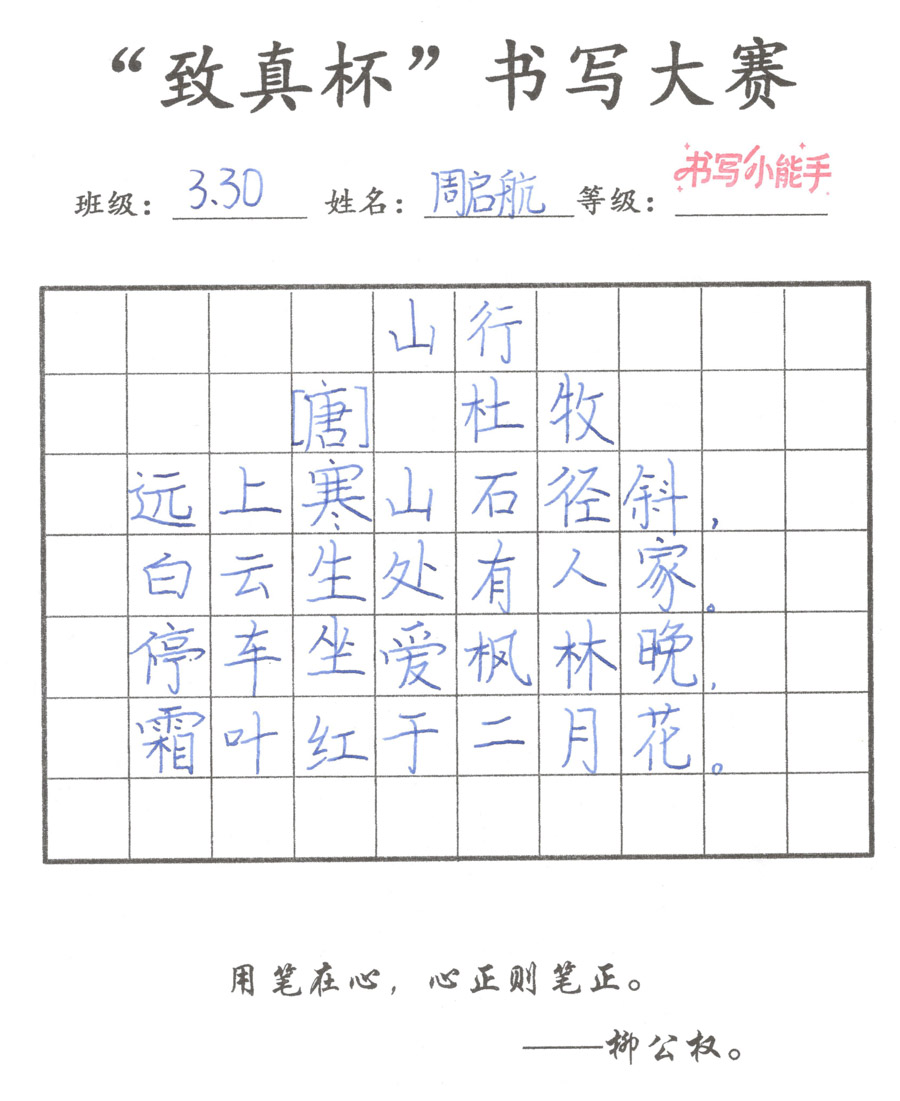 “致真杯”书写大赛
书写小能手
班级：3.30 姓名：周启航 等级：
山行
[唐] 杜牧
远上寒山石径斜，
白云生处有人家。
停车坐爱枫林晚，
霜叶红于二月花。
用笔在心，心正则笔正。
——柳公权。